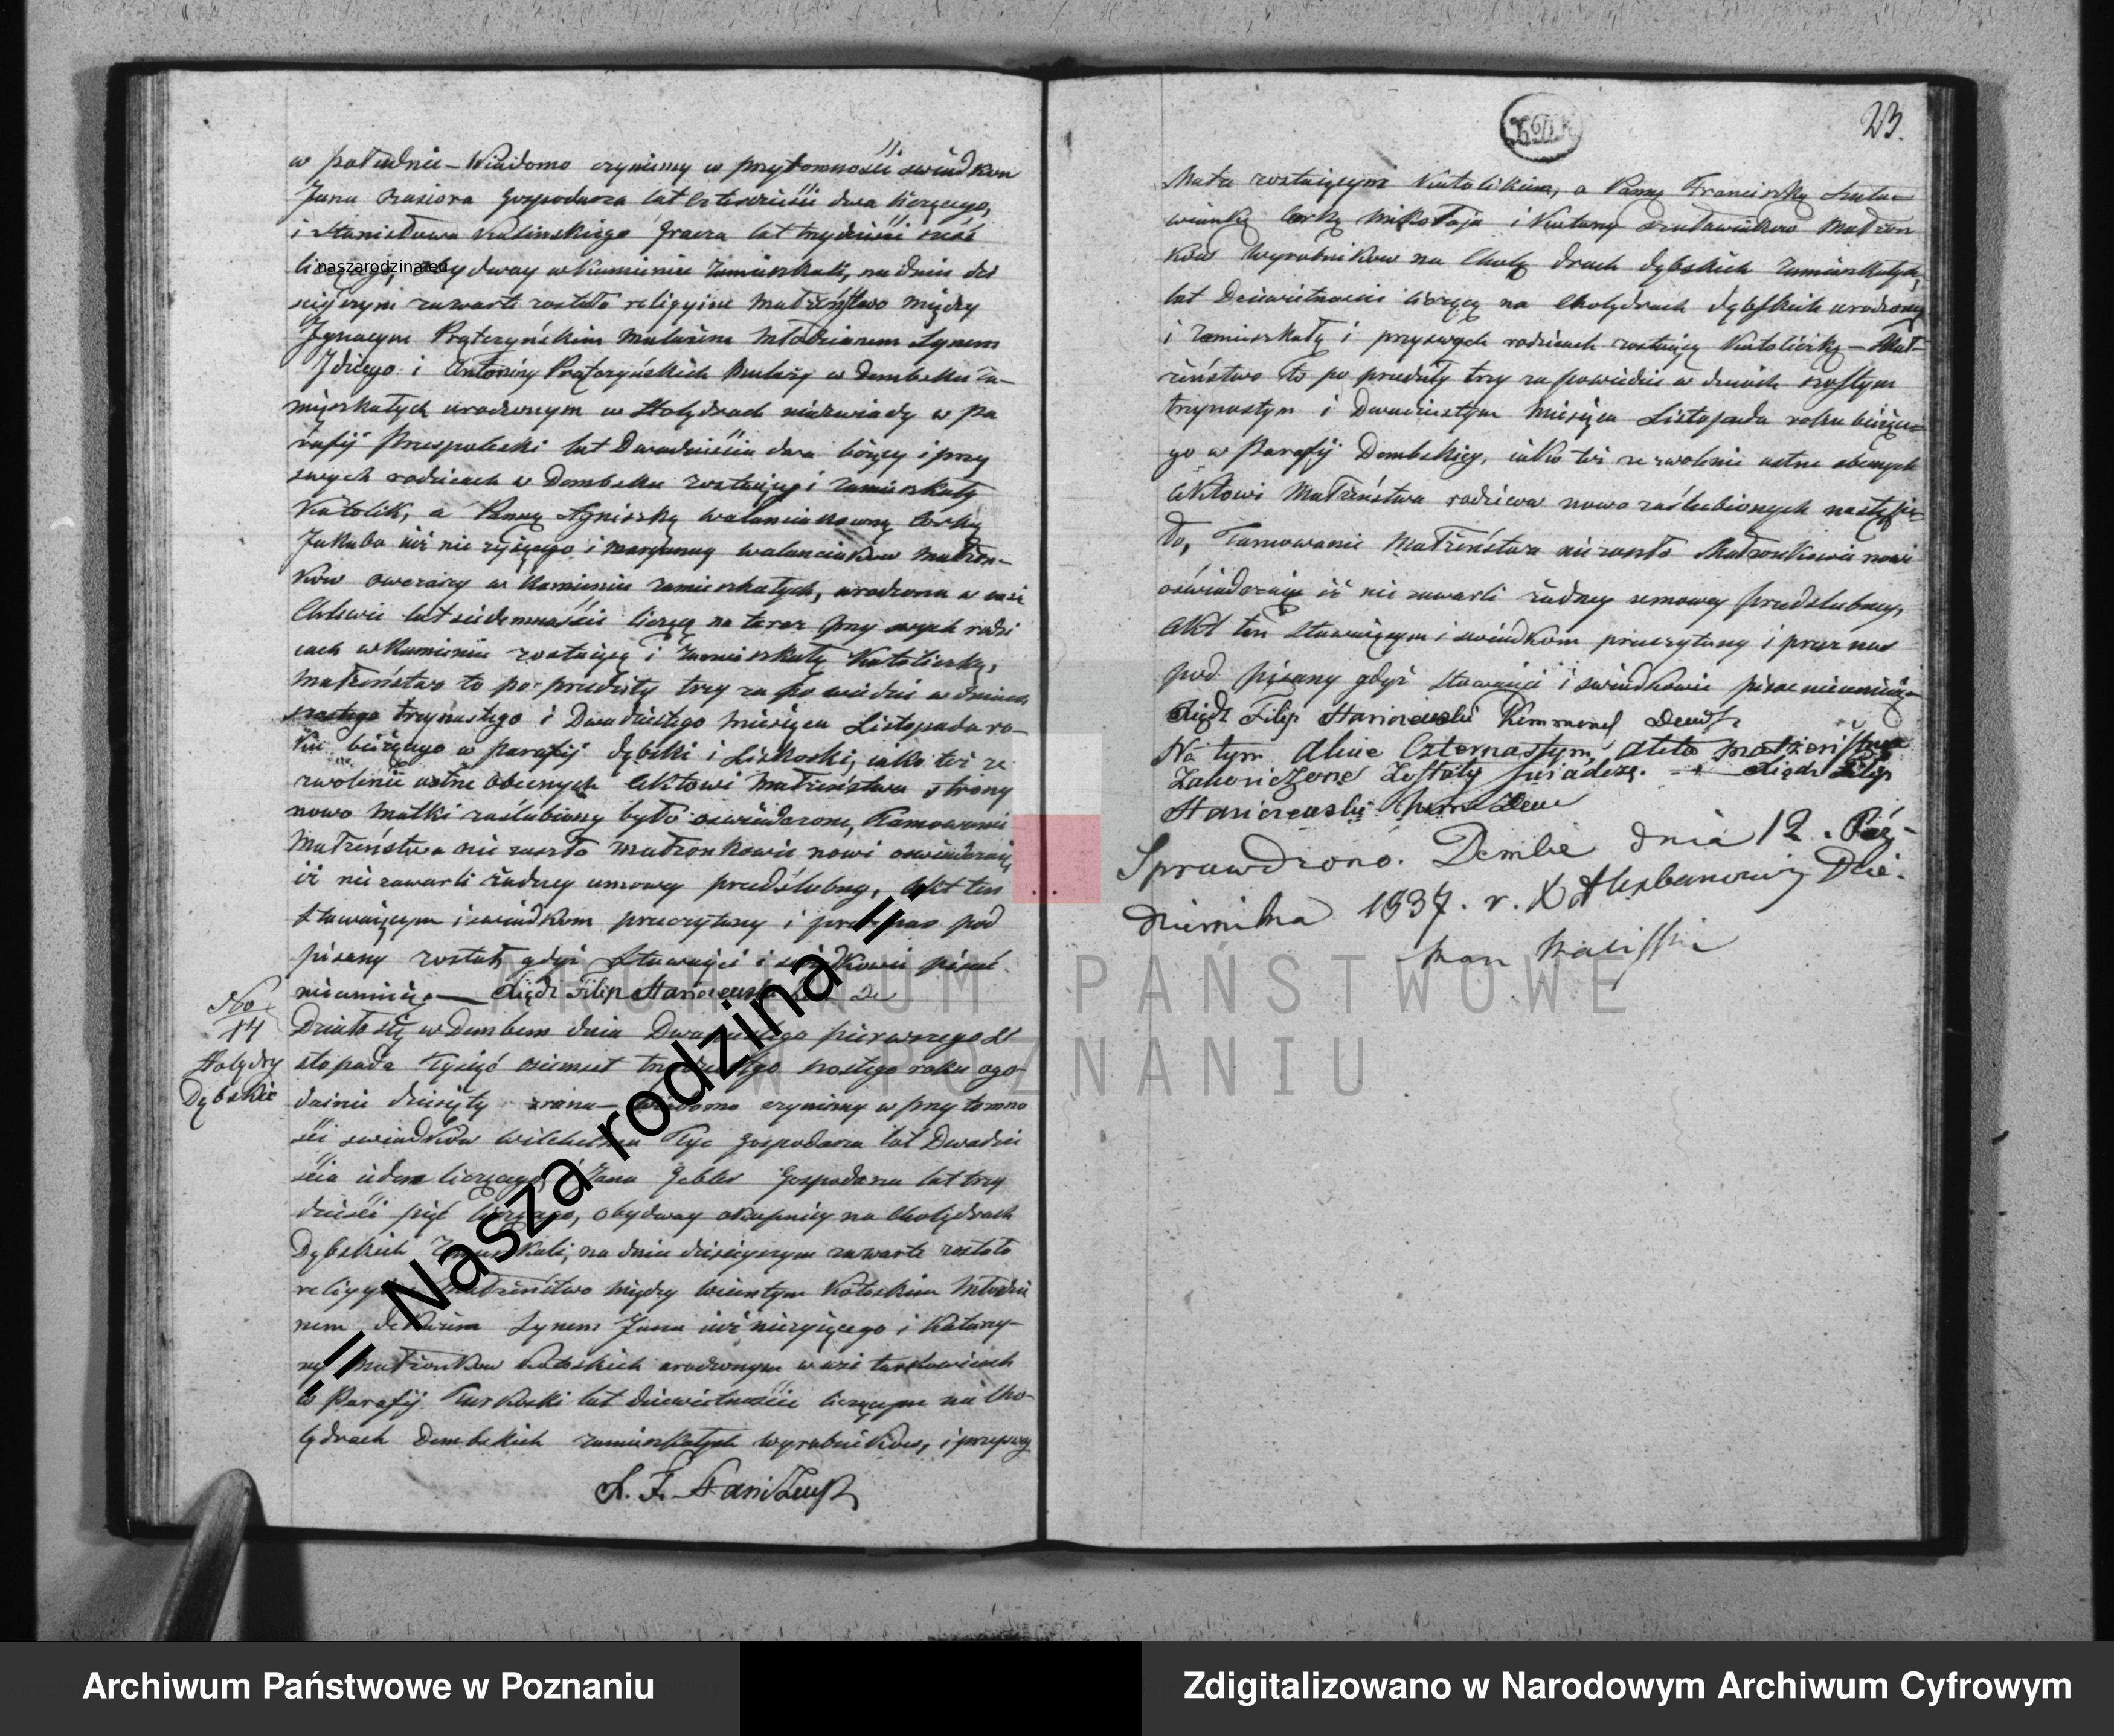 w południe – Wiadomo czyniemy w przytomności swiadkow
Jana Gospodarza lat Czterdzieści dwa liczącego,
i Stanisława Kralinskiego Gracza lat trzydzieści sześć
liczącego, obydway w Kamieniu zamieszkali, na dniu dzi
sieyszym zawarte zostało religijne Małżeństwo między
Ignacym Prątczyńskim Malarzem Młodzianem Synem
Idziego i Antoniny Prątczyńskich Malarzy w Dembsku za-
mięszkałych urodzonym w Holędrach w Pa
rafij lat Dwadzieścia dwa liczący i przy
swych rodzicach w Dembsku zostaiący i zamieszkały
Katolik, a Panną Agniszką Walanciakowną Corką
Jakuba iuż nie żyjącego i Maryanny Walanciakow Małżon-
kow owczarzy w Kamieniu zamieszkałych, urodzona w wsi
Chlewie lat siedemnaście liczącą na teraz przy swych rodzi
cach w Kamieniu zostaiącą i zamieszkałą Katoliczką,
Małżeństwo to po-przedziły trzy zapowiedzi w dniach
szostego trzynastego i Dwudziestego Miesiąca Listopada ro-
ku bieżącego w parafij dębski i Liskoski, iako też ze
zwolenie ustne obecnych Aktowi Małżeństwa strony
nowo matki zaślubiony było oświadczone, Tamowanie
Małżeństwa nie zaszło Małżonkowie nowi oswiadczaią
iż nie zawarli żadney umowy przedślubny, Akt ten
Stawaiącym i swiadkom przeczytany i przez nas pod
pisany został, gdyż Stawaiąci i swiadkowie pisać
nieumieią — Xiądz Filip Staniszewski
No
14
Holędry
Dębskie
Działo się w Dembem dnia Dwudziestego pierwszego Li
stopada Tysiąc osiemset trzydziestego szostego roku ogo-
dzinie dziesiąty zrana – wiadomo czyniemy w przytomno
ści swiadków Wilchelma Tyc Gospodarza lat Dwadzie
ścia siedem liczącego i Jana Gebler Gospodarza lat trzy
dzieści pięć liczącego, obydway okupnicy na Cholędrach
Dębskich zamieszkali, na dniu dzisieyszym zawarte zostało
religijne Małżeństwo między Wicentym Kotoskim Młodzie
nem Synem Jana iuż nieżyiącego i Katarzy-
ny Małżonkow Kotoskich urodzonym w wsi
w Parafij Turkoski lat dziewietnaście liczącym na Cho-
lędrach Dembskich zamieszkałych Wyrobników, i przyswy
X. F. Staniszewski
23.
Matce zostaiącym Katolikiem, a Panną Franciszką Szuła
wianką Corką Mikołaja i Katarzyny Szuławiaków Małżon
ków Wyrobników na Cholędrach dębskich zamieszkałych,
lat Dziewietnaście liczącą na Cholędrach dębskich urodzoną
i zamieszkałą i przyswych rodzicach zostaiącą Katoliczką – Mał-
żeństwo to po przedziły trzy zapowiedzie w dniach szostym
trzynastym i Dwudziestym Miesiąca Listopada roku bieżące
go w Parafij Dembskiey, iako też zezwolenie ustne obecnych
Aktowi Małżeństwa rodziców nowo zaślubionych nastąpi-
ło, Tamowanie Małżeństwa nie zaszło Małżonkowie nowi
oświadczaią iż nie zawarli żadney umowy przedslubney,
Akt ten stawaiącym i swiadkom przeczytany i przez nas
pod pisany gdyż stawaiąci i swiadkowie pisac nieumieią –
Xiądz Filip Staniszewski
Na tym Akcie Czternastym Akta małżeństwa
Zakończone Zostały świadczę. — Xiądz Filip
Staniszewski
Sprawdzono. Dembe dnia 12. Paź-
dziernika 1837. r. X
naszarodzina.eu
.:: Nasza rodzina ::.
ARCHIWUM PAŃSTWOWE
W POZNANIU
Archiwum Państwowe w Poznaniu
Zdigitalizowano w Narodowym Archiwum Cyfrowym